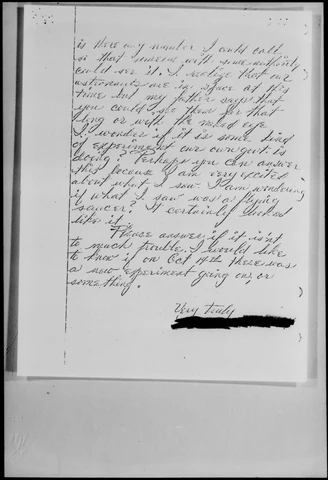 is there any number I could call
so that someone with some authority
could see it. I realize that our
astronauts are in space at this
time but my father says that
you could see them for that
long or with the naked eye.
I wonder if it is some kind
of experiment our own govt. is
doing? Perhaps you can answer
this because I am very excited
about what I saw. I am wondering
if what I saw was a flying
saucer? It certainly looked
like it.
Please answer if it isn't
to much trouble. I would like
to know if on Oct 14th there was
a new experiment going on, or
something.
Very Truly